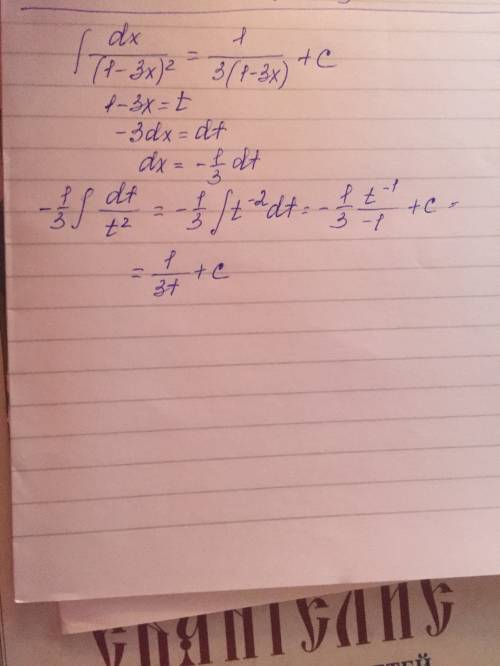 ∫ dx/(1-3x)² = 1/3(1-3x) + C
1-3x = t
-3dx = dt
dx = -1/3 dt
-1/3 ∫ dt/t² = -1/3 ∫ t⁻² dt = -1/3 t⁻¹/-1 + C =
= 1/3t + C